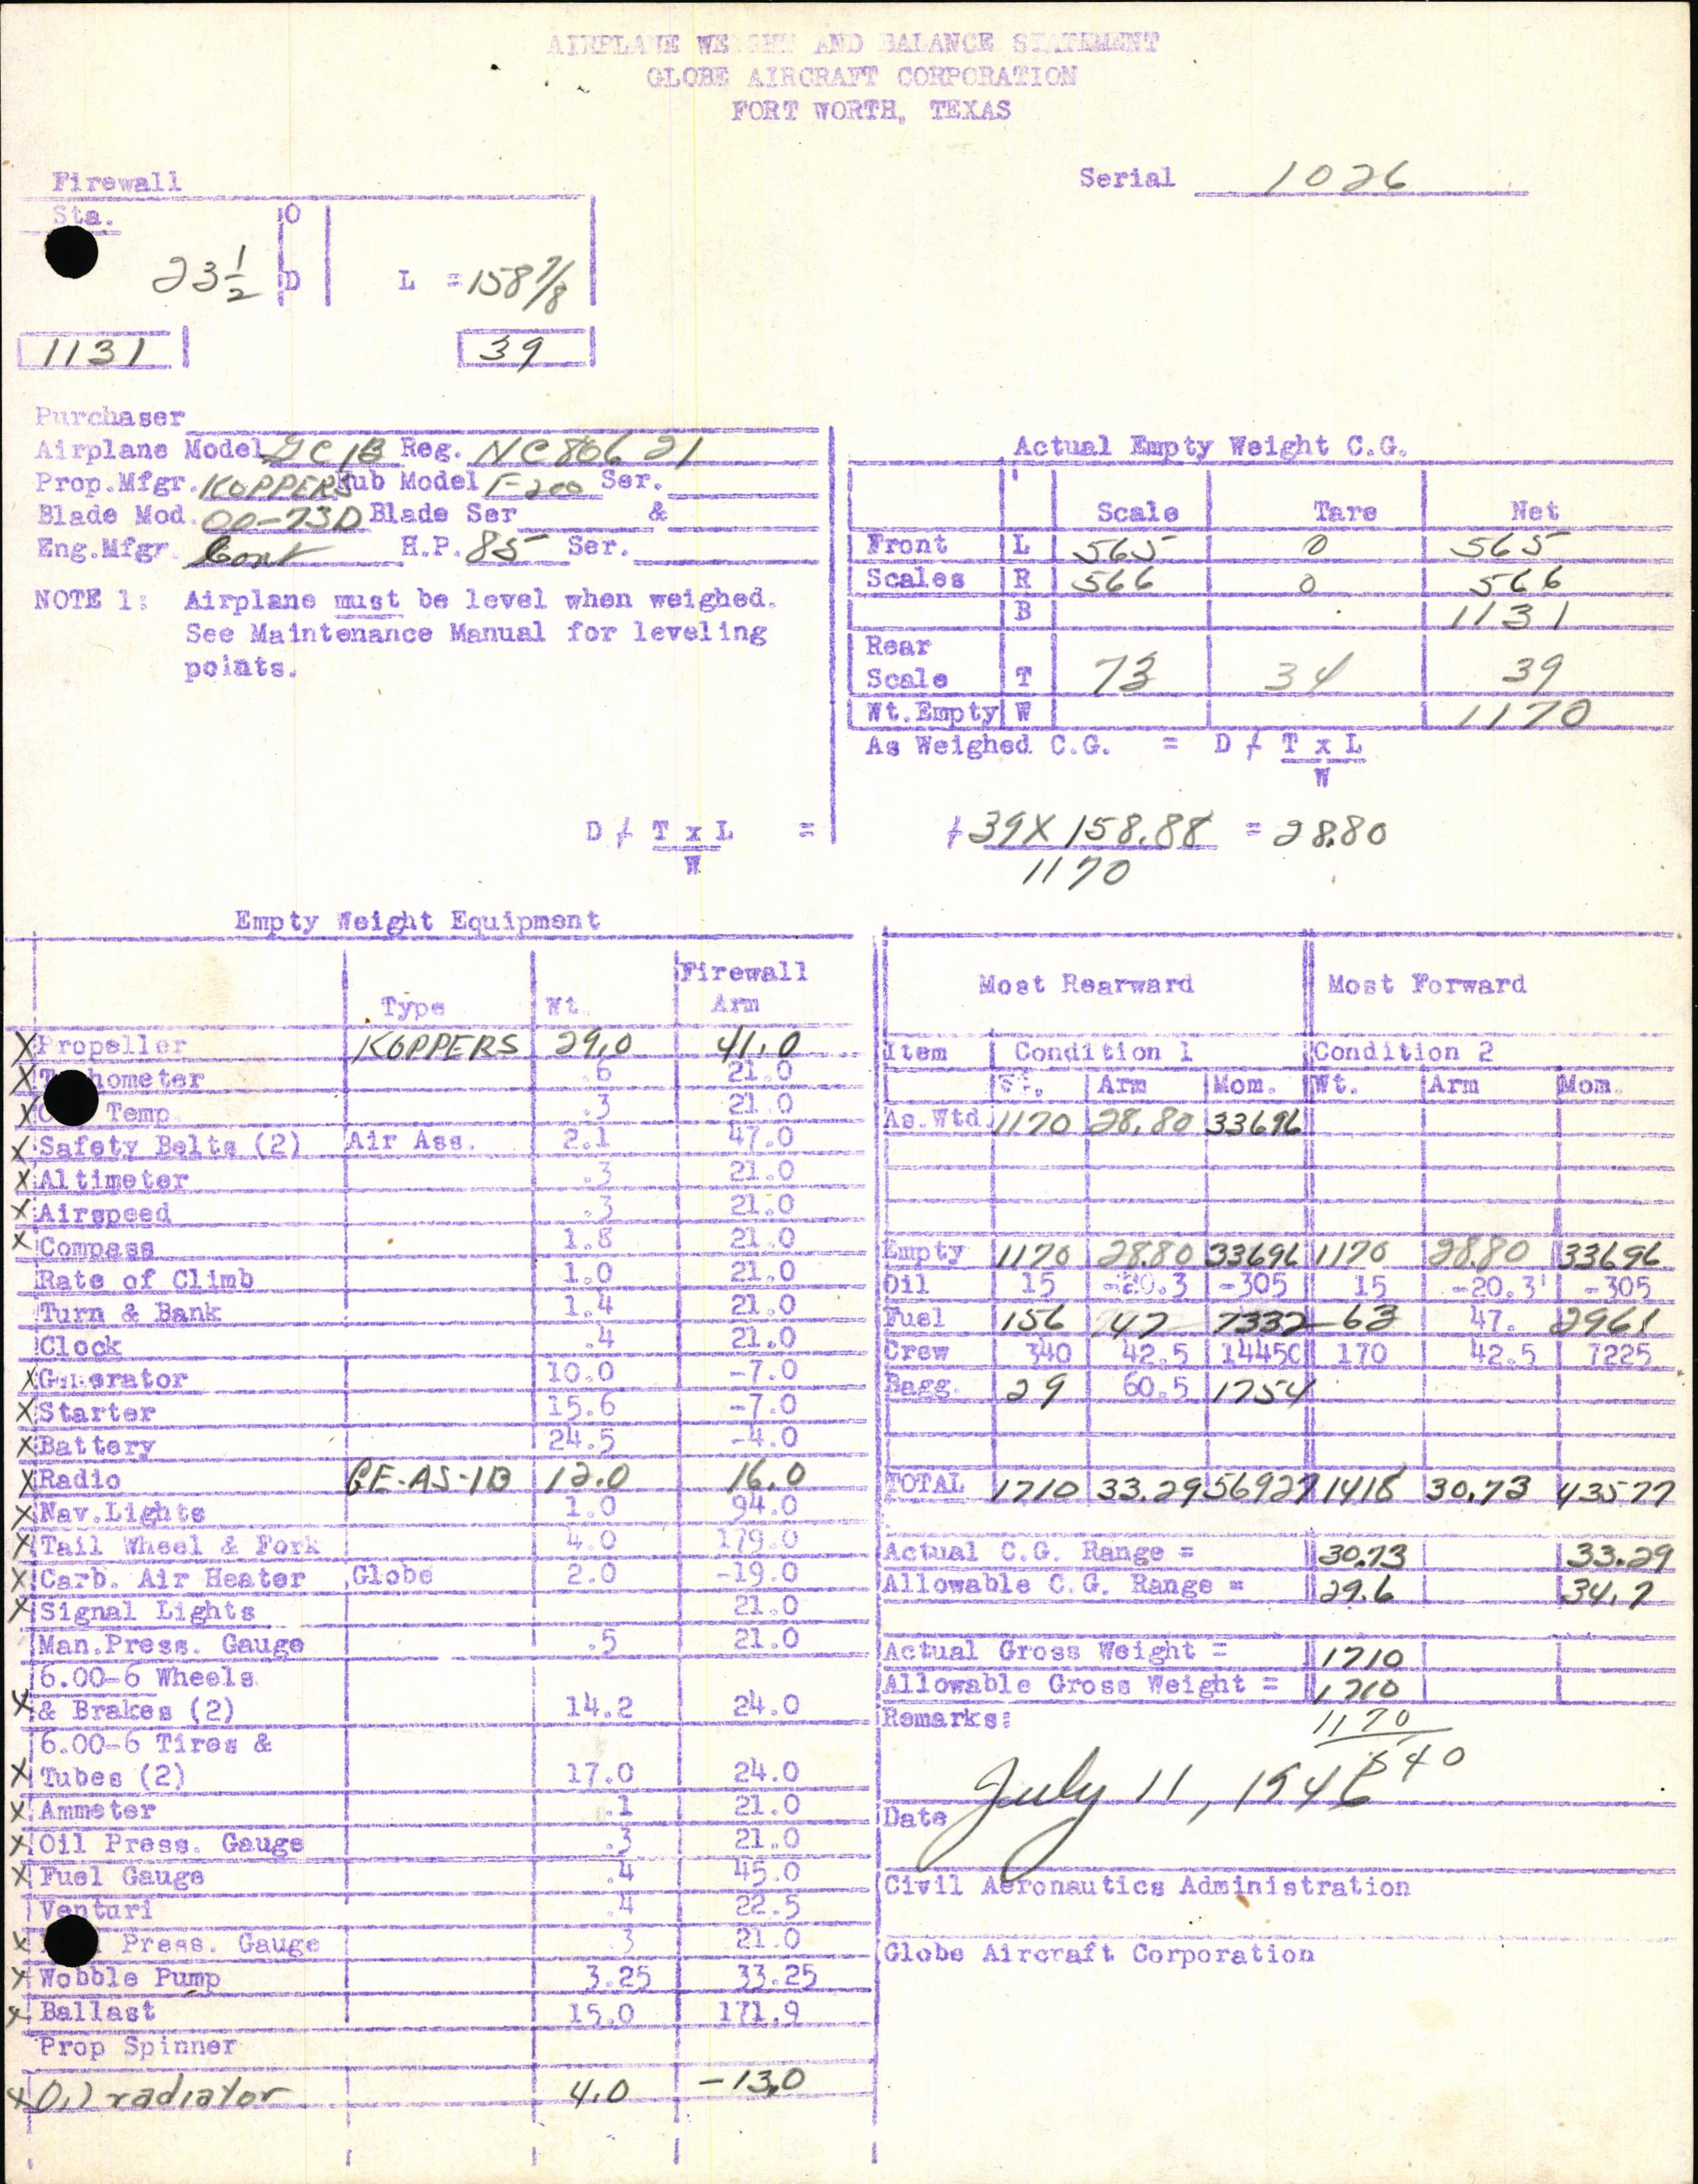 AIRPLANE WEIGHT AND BALANCE STATEMENT
GLOBE AIRCRAFT CORPORATION
FORT WORTH, TEXAS
Serial 1026
Firewall
Sta.
O
23 1/2 D L = 158 7/8
1131 39
Purchaser
Airplane Model GC1B Reg. NC80621
Prop.Mfgr. KOPPERS Hub Model F-200 Ser.
Blade Mod. 00-73D Blade Ser & 
Eng.Mfgr. Cont H.P. 85 Ser.
NOTE 1: Airplane must be level when weighed.
See Maintenance Manual for leveling
points.
Actual Empty Weight C.G.
Scale Tare Net
Front L 565 0 565
Scales R 566 0 566
B 1131
Rear
Scale T 73 34 39
Wt.Empty W 1170
As Weighed C.G. = D ⁄ T x L
W
D ⁄ T x L =
W
⁄ 39 X 158.88 = 28.80
1170
Empty Weight Equipment
Type Wt. Firewall Arm
X Propeller KOPPERS 29.0 41.0
X Tachometer .6 21.0
X Temp. .3 21.0
X Safety Belts (2) Air Ass. 2.1 47.0
X Altimeter .3 21.0
X Airspeed .3 21.0
X Compass 1.8 21.0
Rate of Climb 1.0 21.0
Turn & Bank 1.4 21.0
Clock .4 21.0
X Generator 10.0 -7.0
X Starter 15.6 -7.0
X Battery 24.5 -4.0
X Radio GE-AS-1B 12.0 16.0
X Nav.Lights 1.0 94.0
X Tail Wheel & Fork 4.0 179.0
X Carb. Air Heater Globe 2.0 -19.0
X Signal Lights 21.0
Man.Press. Gauge .5 21.0
6.00-6 Wheels
X & Brakes (2) 14.2 24.0
6.00-6 Tires &
X Tubes (2) 17.0 24.0
X Ammeter .1 21.0
X Oil Press. Gauge .3 21.0
X Fuel Gauge .4 45.0
Venturi .4 22.5
X Press. Gauge .3 21.0
X Wobble Pump 3.25 33.25
X Ballast 15.0 171.9
Prop Spinner
X Oil radiator 4.0 -13.0
Most Rearward Most Forward
Item Condition 1 Condition 2
Wt. Arm Mom. Wt. Arm Mom.
As.Wtd 1170 28.80 33696
Empty 1170 28.80 33696 1170 28.80 33696
Oil 15 -20.3 -305 15 -20.3 -305
Fuel 156 47 7332 63 47. 2961
Crew 340 42.5 14450 170 42.5 7225
Bagg. 29 60.5 1754
TOTAL 1710 33.29 56927 1418 30.73 43577
Actual C.G. Range = 30.73 33.29
Allowable C.G. Range = 29.6 34.7
Actual Gross Weight = 1710
Allowable Gross Weight = 1710
Remarks: 1170
540
Date July 11, 1946
Civil Aeronautics Administration
Globe Aircraft Corporation